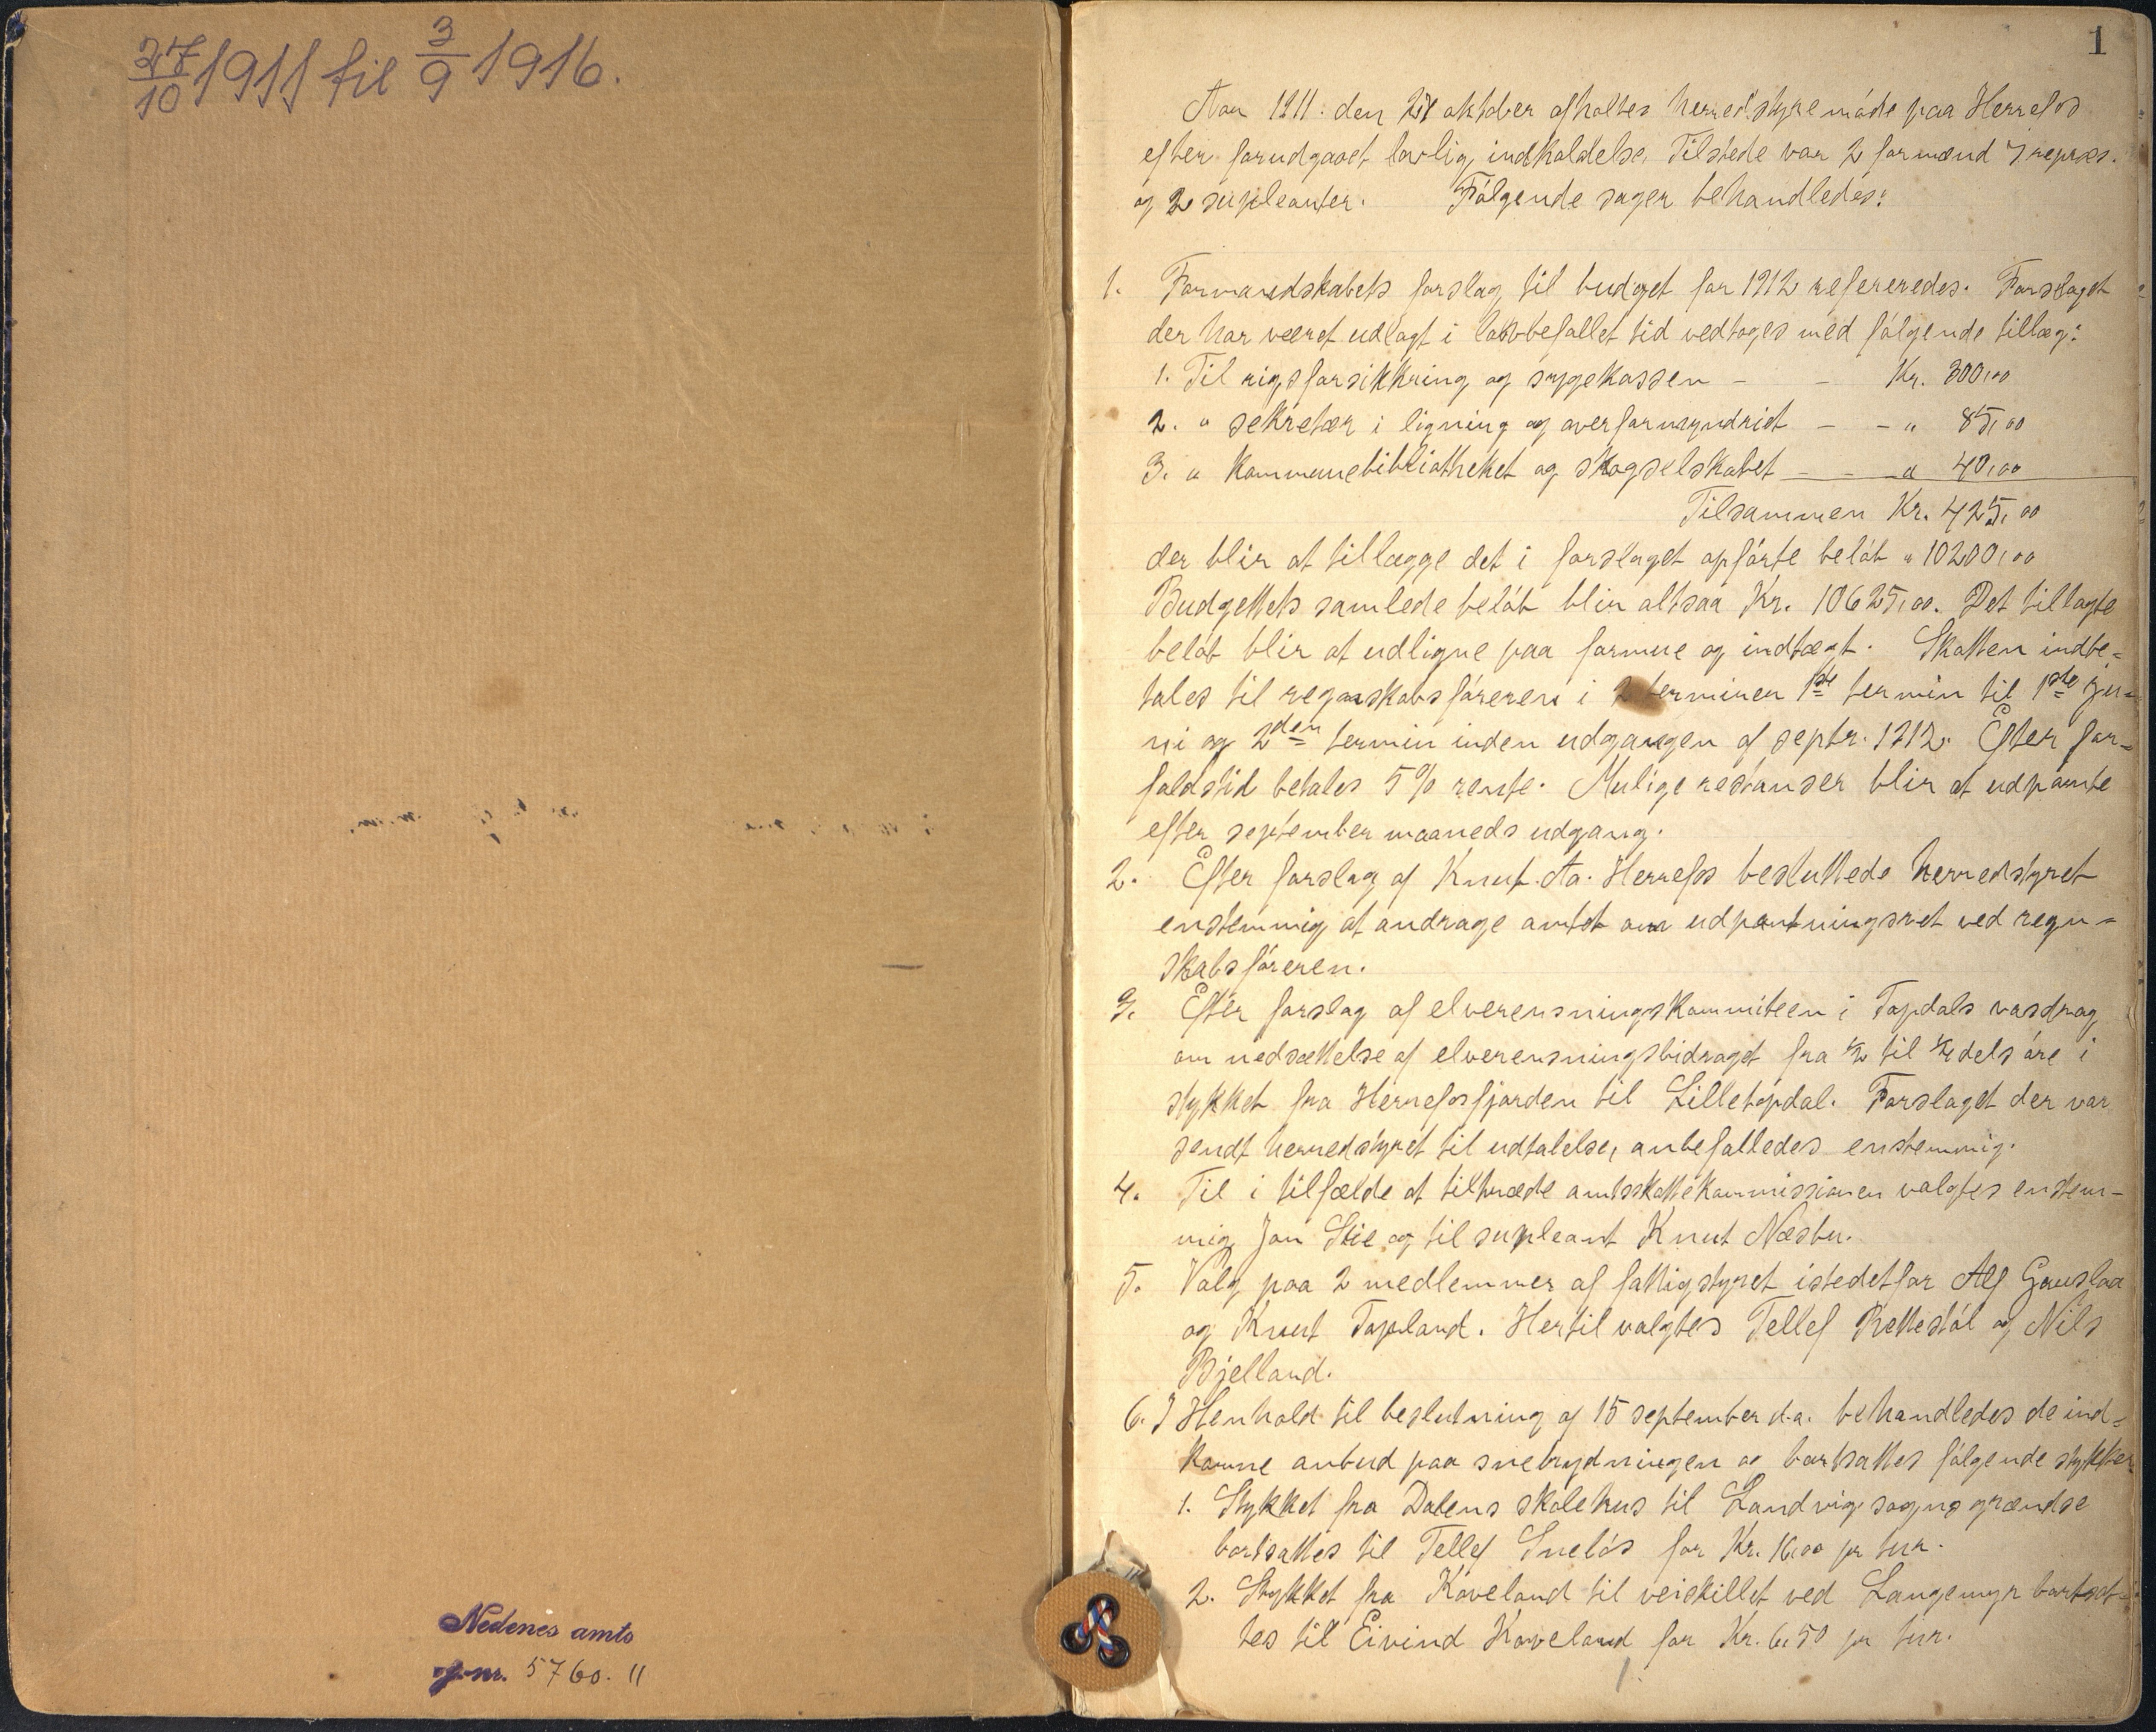 27/10 1911 til 3/9 1916.
Nedenes amts
j.nr. 5760. 11
1
Aar 1911 den 27 oktober afholtes herredstyremøde paa Herrefos
efter forudgaaet lovlig indkaldelse. Tilstede var 2 formænd 7 repræs.
og 2 supleanter. Følgende sager behandledes:
1. Formandskabets forslag til budget for 1912 refereredes. Forslaget
der har været udlagt i lovbefallet tid vedtoges med følgende tillæg:
1. Til rigsforsikkring og sygekassen - - Kr. 300,00
2. " sekretær i ligning og overformyndriet - - " 85,00
3. " Kommunebibliotheket og skogselskabet - - " 40,00
Tilsammen Kr. 425,00
der blir at tillægge det i forslaget opførte beløb " 10200,00
Budgettets samlede beløb blir altsaa Kr. 10625,00. Det tillagte
beløb blir at udligne paa formue og indtægt. Skatten indbe=
tales til regnskabsføreren i 2 terminer 1ste termin til 1ste ju=
ni og 2den termin inden udgangen af septr. 1912. Efter for=
faldstid betales 5% rente. Mulige restanser blir at udpante
efter september maaneds udgang.
2. Efter forslag af Knut Aa. Herrefos besluttede herredstyret
enstemmig at andrage amtet om udpantningsret ved regn=
skabsføreren.
3. Efter forslag af elverensningskommiteen i Topdals vasdrag
om nedsættelse af elverensningsbidraget fra 1/2 til 1/4 dels øre i
stykket fra Herrefosfjorden til Lilletopdal. Forslaget der var
sendt herredstyret til udtalelse, anbefalledes enstemmig.
4. Til i tilfælde at tiltræde amtsskattekommissionen valgtes enstem-
mig Jon Stie og til supleant Knut Næsbu.
5. Valg paa 2 medlemmer af fattigstyret istedetfor Alf Gauslaa
og Knut Topland. Hertil valgtes Tellef Rettestøl og Nils
Bjelland.
6. I Henhold til beslutning af 15 september d.a. behandledes de ind=
komne anbud paa snebrydningen og bortsattes følgende stykker
1. Stykket fra Dalens skolehus til Landvig sogns grændse
bortsattes til Tellef Sneløs for Kr. 16,00 pr tur.
2. Stykket fra Koveland til veiskillet ved Langemyr bortsat=
tes til Eivind Koveland for Kr. 6,50 pr tur.